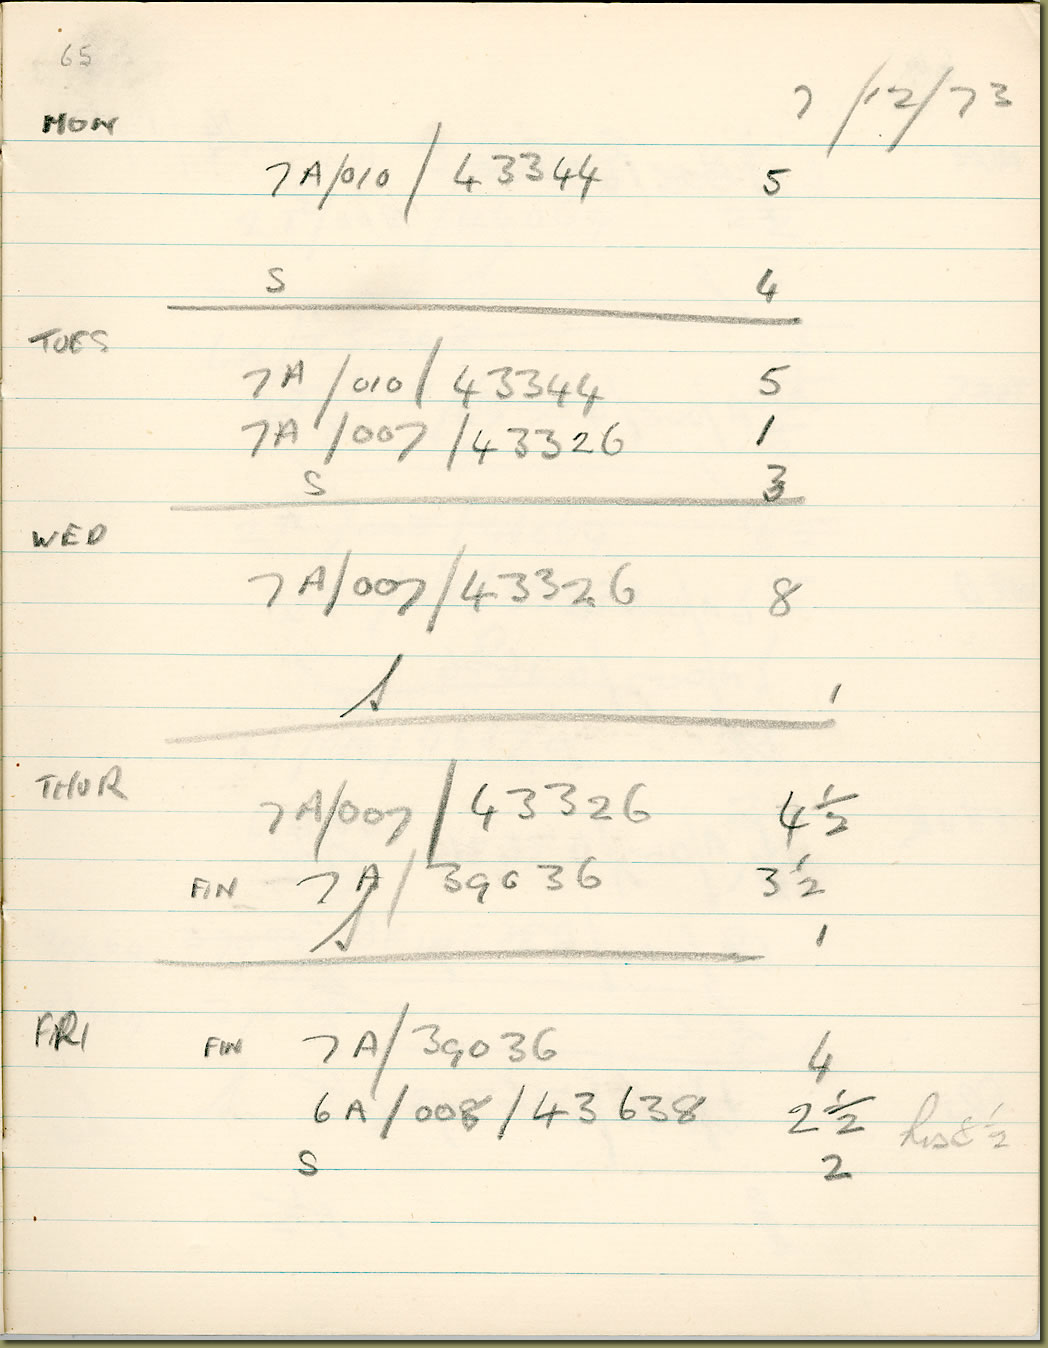 65
7/12/73
MON
7A/010/43344 5
S 4
TUES
7A/010/43344 5
7A/007/43326 1
S 3
WED
7A/007/43326 8
S 1
THUR
7A/007/43326 4 1/2
FIN 7A/39036 3 1/2
S 1
FRI
FIN 7A/39036 4
6A/008/43638 2 1/2 hrs 8 1/2
S 2